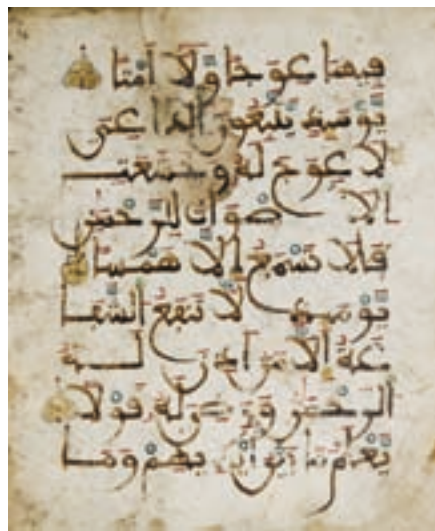 فِيهَا عِوَجًا وَلَا أَمْتًا
يَوْمَئِذٍ يَتَّبِعُونَ الدَّاعِيَ
لَا عِوَجَ لَهُ وَخَشَعَتِ
الْأَصْوَاتُ لِلرَّحْمَٰنِ
فَلَا تَسْمَعُ إِلَّا هَمْسًا
يَوْمَئِذٍ لَّا تَنفَعُ الشَّفَا
عَةُ إِلَّا مَنْ أَذِنَ لَهُ
الرَّحْمَٰنُ وَرَضِيَ لَهُ قَوْلًا
يَعْلَمُ مَا بَيْنَ أَيْدِيهِمْ وَمَا